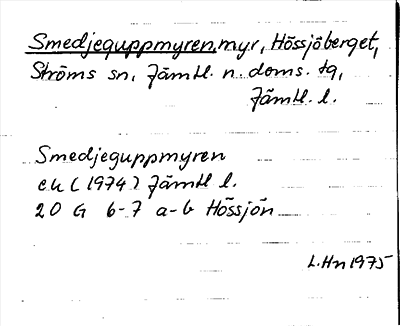 Smedjeguppmyren, myr, Hössjöberget,
Ströms sn, Jämtl. n. doms. tg,
Jämtl. l.
Smedjeguppmyren
ek (1974) Jämtl l.
20 G 6-7 a-b Hössjön
L.Hn 1975